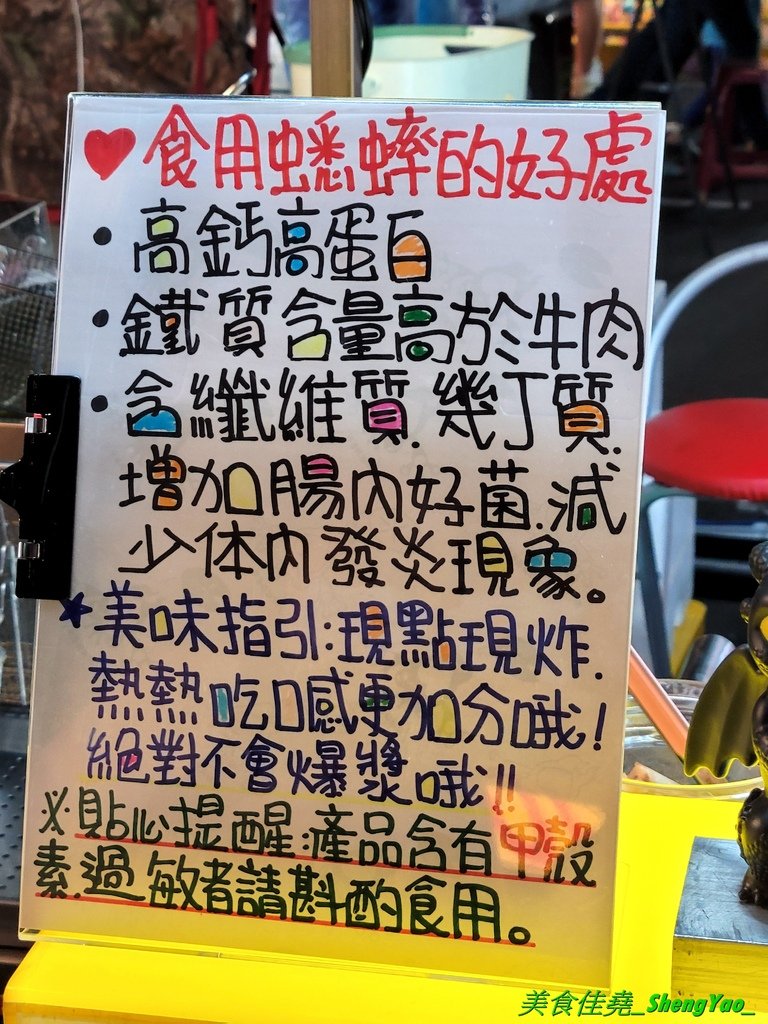 ♥食用蟋蟀的好處
•高鈣高蛋白
•鐵質含量高於牛肉
•含纖維質.幾丁質.
增加腸內好菌.減
少体內發炎現象。
★美味指引:現點現炸.
熱熱吃口感更加分哦!
絕對不會爆漿哦!!
※貼心提醒:產品含有甲殼
素.過敏者請斟酌食用。
美食佳堯_ShengYao_